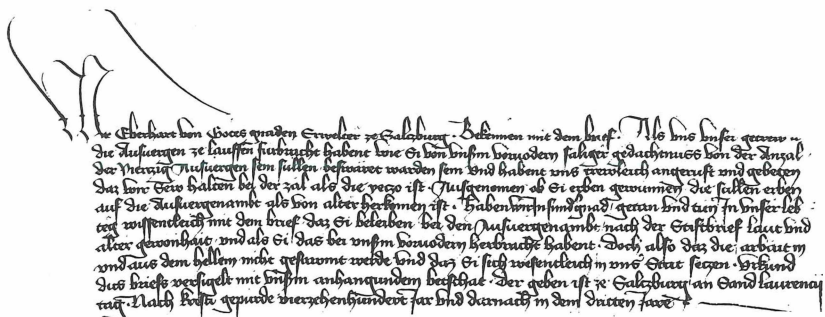 Wir Eberhart von Gotes gnaden Erwelter ze Salzburg · Bekennen mit dem brief · Als vns vnser getrew
die Ausuergen ze lauffen furbracht habent wie Si von vnsern voruodern saliger gedachtnuss von der Anzal
der Vierzig Ausuergen sein sullen beswaret warden sein vnd habent vns trewleich angerufft vnd gebeten
daz wir Sew halten bei der zal als die yeczo ist · Ausgenomen ob Si erben gewunnen die sullen erben
auf die Ausuergenambt als von alter herkomen ist · Haben wir In sund gnad getan vnd tun In vnser leb
teg wissentleich mit dem brief daz Si beleiben bei den Ausuergenambt nach der Stiftbrief laut vnd
alter gewonhait vnd als Si das bei vnsern voruodern herbracht habent · Doch also daz die arbait in
vnd aus dem hellein nicht gesawmt werde vnd daz Si sich wesentleich in vns Stat setzen · Vrkund
dits briefs versigelt mit vnserm anhangundem betschat · Der geben ist ze Salzburg an Sand laurencii
tag · Nach kristi gepurde vierzehenhundert Jar vnd darnach in dem dritten Jare